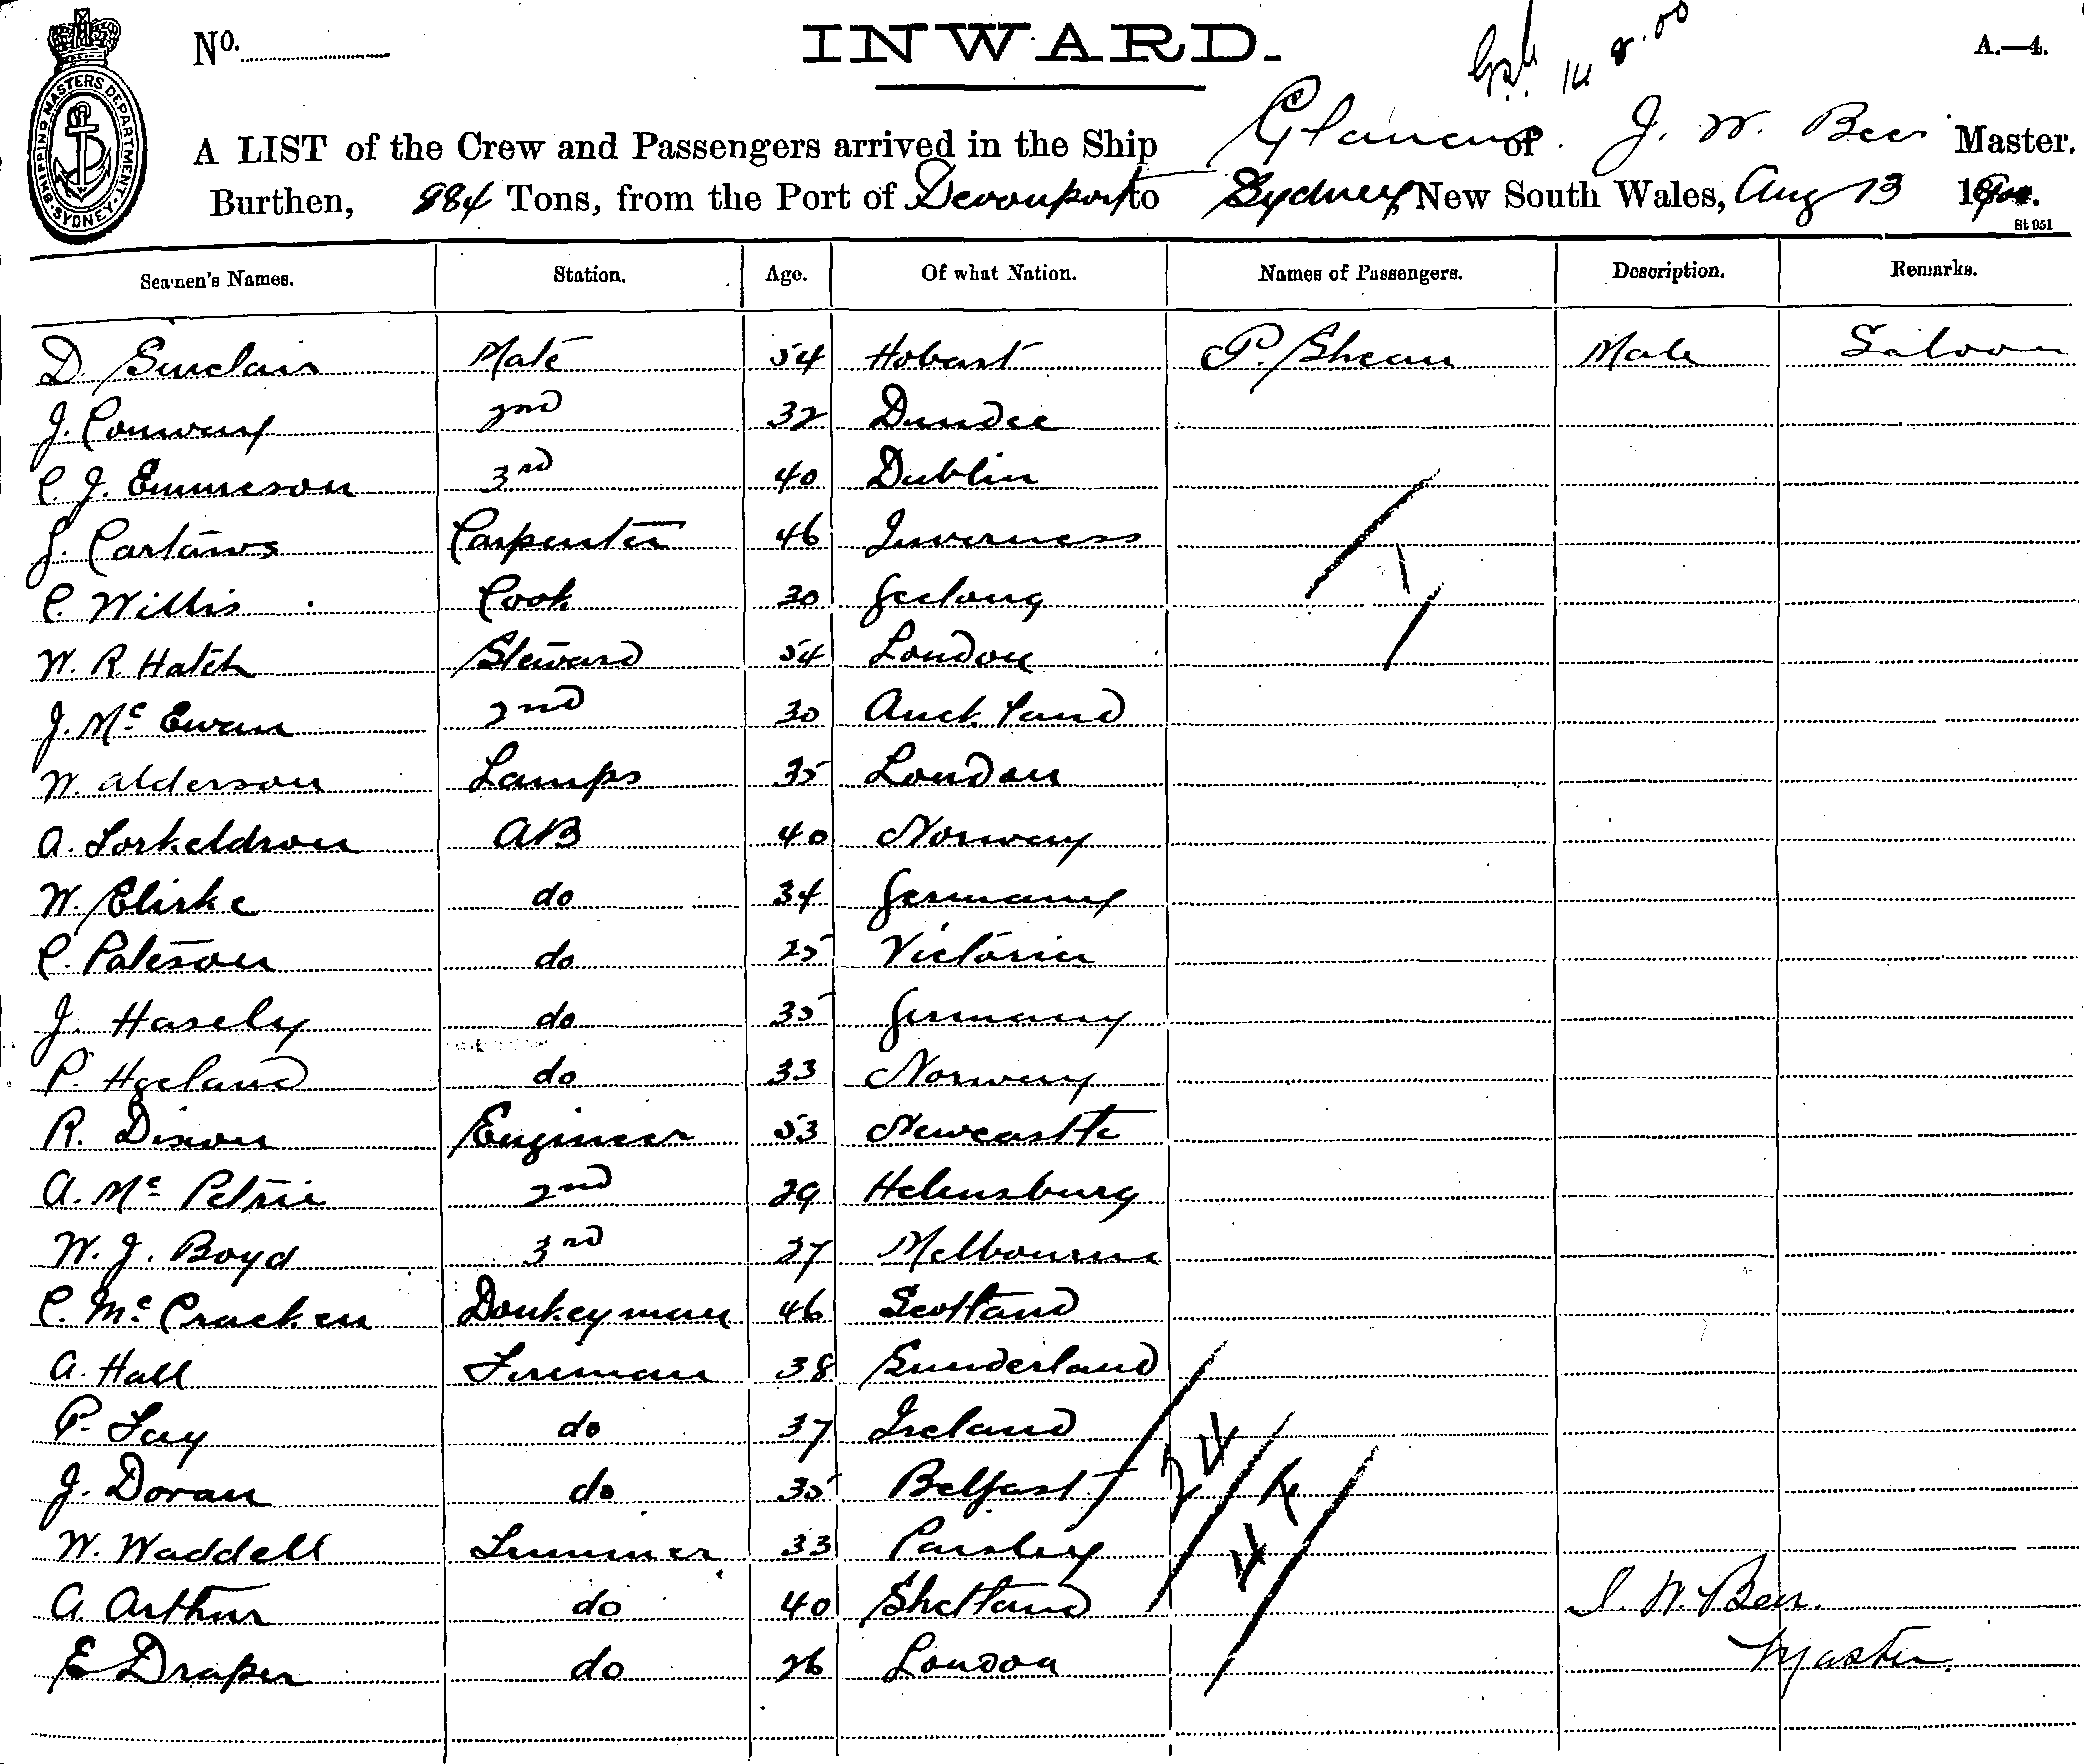 No.
INWARD.
14 8.00
A.—4.
SHIPPING MASTERS DEPARTMENT. SYDNEY.
A LIST of the Crew and Passengers arrived in the Ship Glaucus of J. W. Beer Master.
Burthen, 984 Tons, from the Port of Devonport to Sydney New South Wales, Aug 13
St 951
Seamen's Names. Station. Age. Of what Nation. Names of Passengers. Description. Remarks.
D. Sinclair Mate 54 Hobart P. Shean Male Saloon
J. Conway 2nd 32 Dundee
C. J. Emmerson 3rd 40 Dublin
J. Carpenter 46 Inverness
C. Willis Cook 30 Geelong
W. R. Hatch Steward 54 London
J. Mc Ewan 2nd 30 Auckland
W. Alderson Lamps 35 London
A. Torkeldson AB 40 Norway
W. do 34 Germany
C. Paterson do 25 Victoria
J. Hasely do 35 Germany
P. do 33 Norway
R. Dixon Engineer 53 Newcastle
A. Mc Petrie 2nd 29 Helensburg
W. J. Boyd 3rd 27 Melbourne
C. Mc Cracken Donkeyman 46 Scotland
A. Hall Fireman 38 Sunderland
P. Fay do 37 Ireland
J. Doran do 35 Belfast
W. Waddell Trimmer 33 Paisley
A. Arthur do 40 Shetland
J. W. Beer.
E Draper do 26 London
Master.